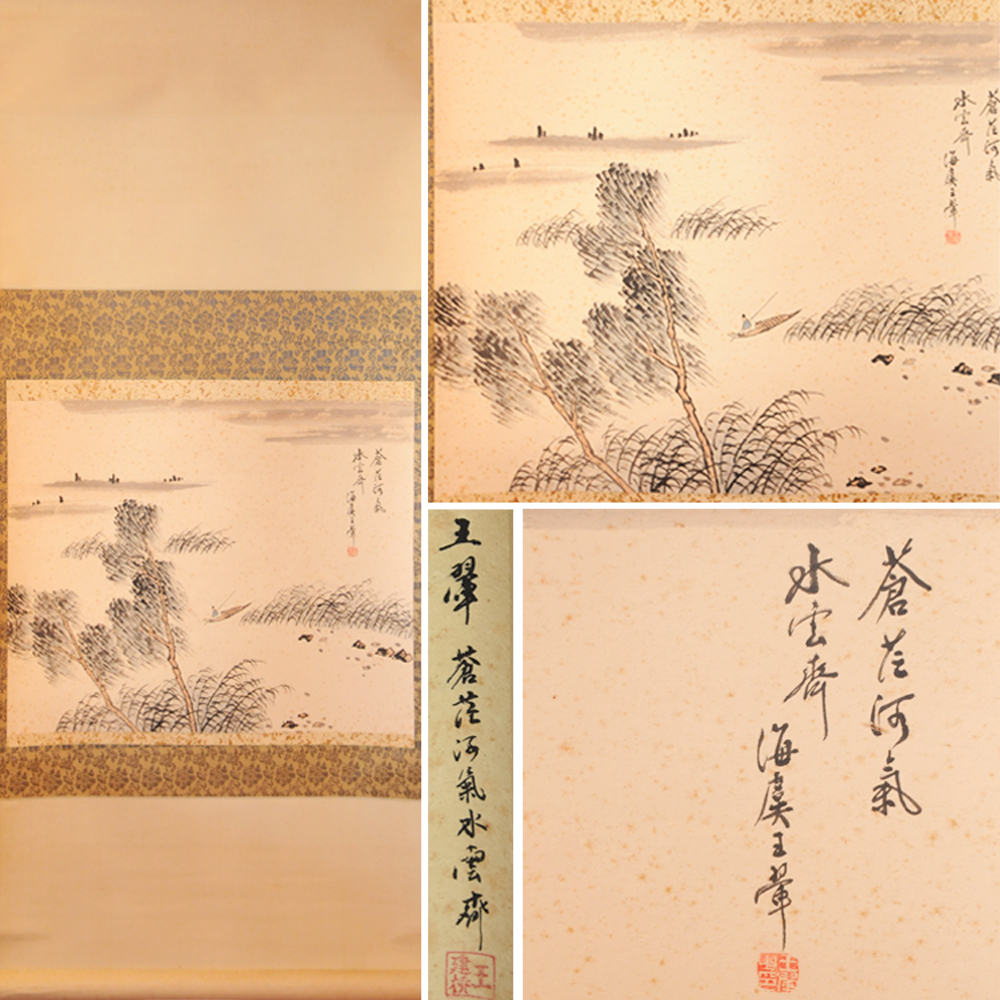 蒼茫河氣
水雲齊
海虞王翬
蒼茫河氣
水雲齊
海虞王翬
王翬 蒼茫河氣水雲齊
蒼茫河氣
水雲齊
海虞王翬